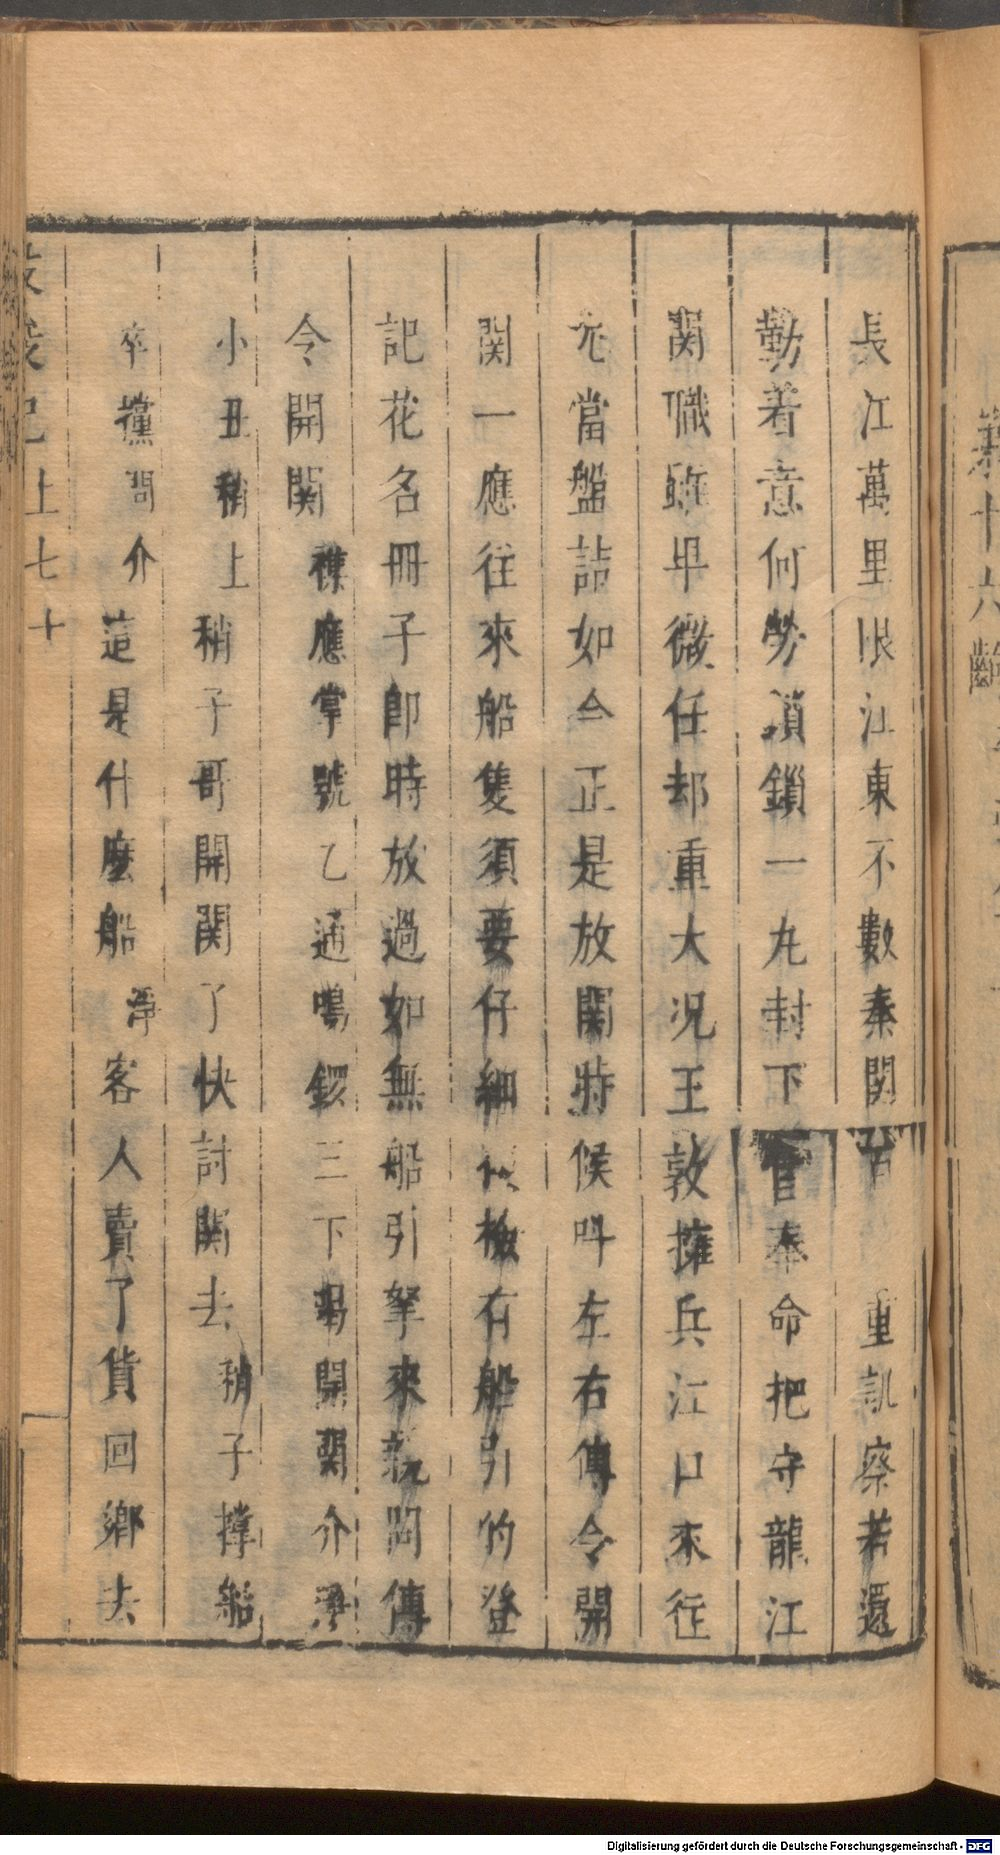 長江萬里限江東不數秦關百 重譏察若還
勤着意何勞須鎖一丸封下官奉命把守龍江
関職雖卑微任却重大况王敦擁兵江口來往
尤當盤詰如今正是放關時候呌左右傳令開
関一應往來船隻須要仔細 檢有船引的登
記花名冊子即時放過如無船引拏來 問傳
令開関 襍應掌號乙通鳴鑼三下喝開關介 淨
小丑稍上 稍子哥開関了快討關去 稍子撑船
卒攩問介 這是什麽船 淨 客人賣了貨回鄉去
記上七十
第十六齣
Digitalisierung gefördert durch die Deutsche Forschungsgemeinschaft - DFG